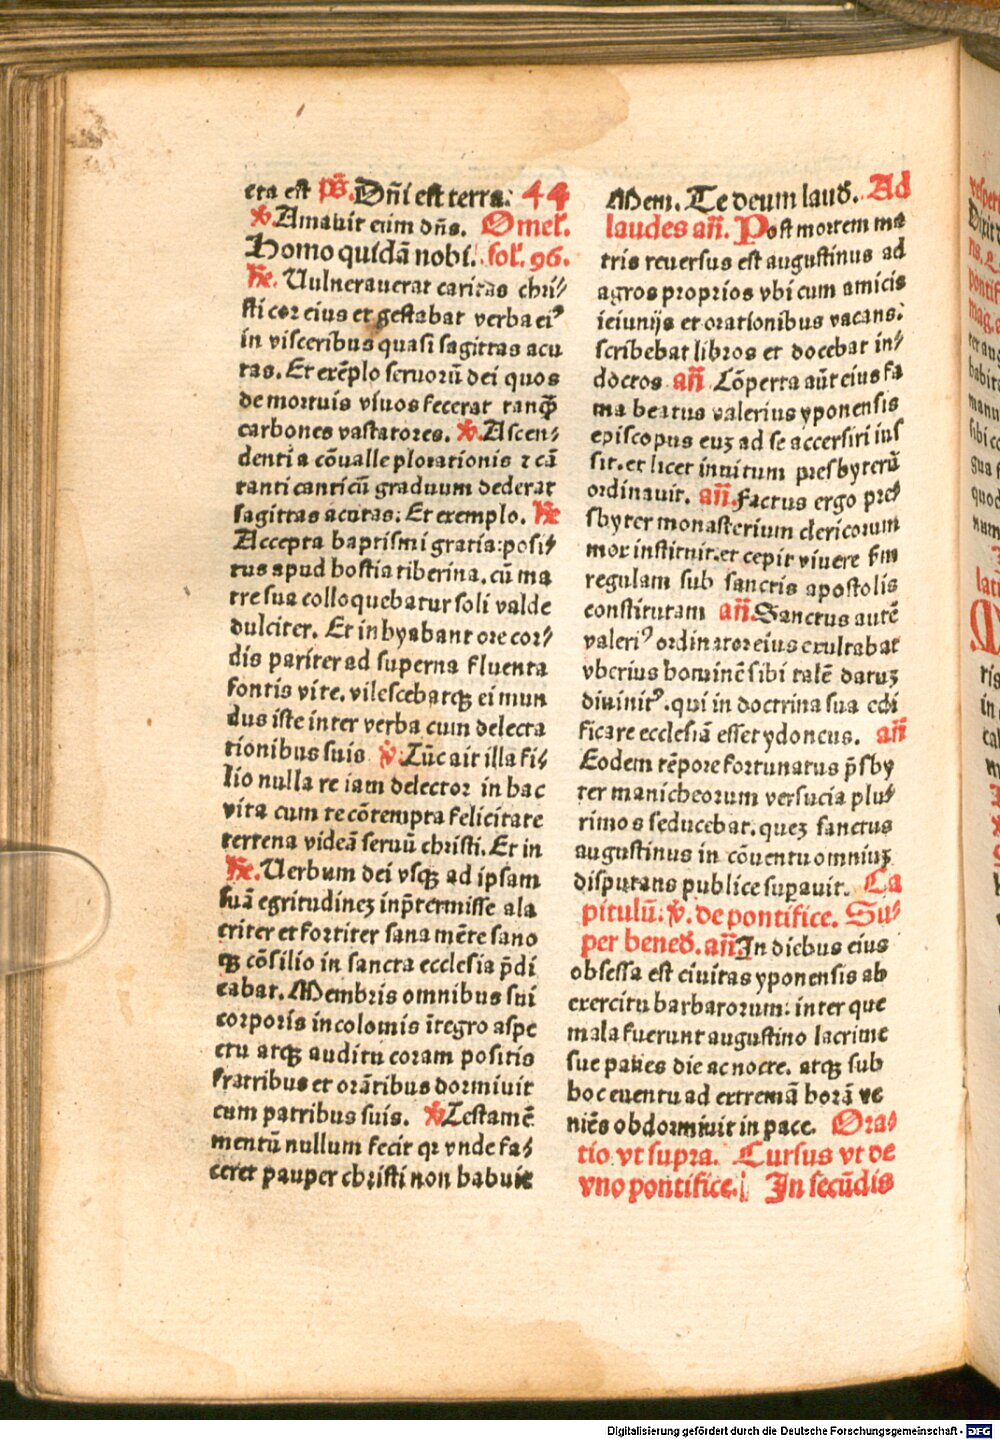 eta est p̄s. Dn̄i est terra: 44
℣. Amauit eum dn̄s. Omel'.
Homo quidā nobi. fol'. 96.
R̄e. Uulnerauerat caritas chri⸗
sti cor eius et gestabat verba eiꝰ
in visceribus quasi sagittas acu
tas. Et exēplo seruorū dei quos
de mortuis viuos fecerat tanqȝ
carbones vastatores. ℣. Ascen⸗
denti a cōualle plorationis ⁊ cā
tanti canticū graduum dederat
sagittas acutas. Et exemplo. R̄e
Accepta baptismi gratia: posi⸗
tus apud hostia tiberina. cū ma
tre sua colloquebatur soli valde
dulciter. Et inhyabant ore cor⸗
dis pariter ad superna fluenta
fontis vite. vilescebatqȝ ei mun
dus iste inter verba cum delecta
tionibus suis ℣. Tūc ait illa fi⸗
lio nulla re iam delector in hac
vita cum te cōtempta felicitate
terrena videā seruū christi. Et in
R̄e. Uerbum dei vsqȝ ad ipsam
suā egritudineȝ inp̄termisse ala
criter et fortiter sana mēte sano
qȝ cōsilio in sancta ecclesia p̄di
cabat. Membris omnibus sui
corporis incolomis ītegro aspe
ctu atqȝ auditu coram positis
fratribus et orātibus dormiuit
cum patribus suis. ℣. Testamē
mentū nullum fecit qr vnde fa⸗
ceret pauper christi non habuit
Mem. Te deum laud. Ad
laudes an̄. Post mortem ma
tris reuersus est augustinus ad
agros proprios vbi cum amicis
ieiunijs et orationibus vacans.
scribebat libros et docebat in⸗
doctos an̄ Cōperta aūt eius fa
ma beatus valerius yponensis
episcopus euȝ ad se accersiri ius
sit. et licet inuitum presbyterū
ordinauit. an̄. Factus ergo pres
byter monasterium clericorum
mox instituit. et cepit viuere s̄m
regulam sub sanctis apostolis
constitutam an̄. Sanctus autē
valeriꝰ ordinator eius exultabat
vberius hominē sibi talē datuȝ
diuinitꝰ. qui in doctrina sua edi
ficare ecclesiā esset ydoneus. an̄
Eodem tēpore fortunatus p̄sby
ter manicheorum versucia plu⸗
rimos seducebat. queȝ sanctus
augustinus in cōuentu omniuȝ
disputans publice suꝑauit. Ca
pitulū: ℣. de pontifice. Su⸗
per bened. an̄. In diebus eius
obsessa est ciuitas yponensis ab
exercitu barbarorum: inter que
mala fuerunt augustino lacrime
sue panes die ac nocte. atqȝ sub
hoc euentu ad extremā horā ve
niēs obdormiuit in pace. Ora⸗
tio vt supra. Cursus vt de
vno pontifice. In secūdis
Digitalisierung gefördert durch die Deutsche Forschungsgemeinschaft - DFG